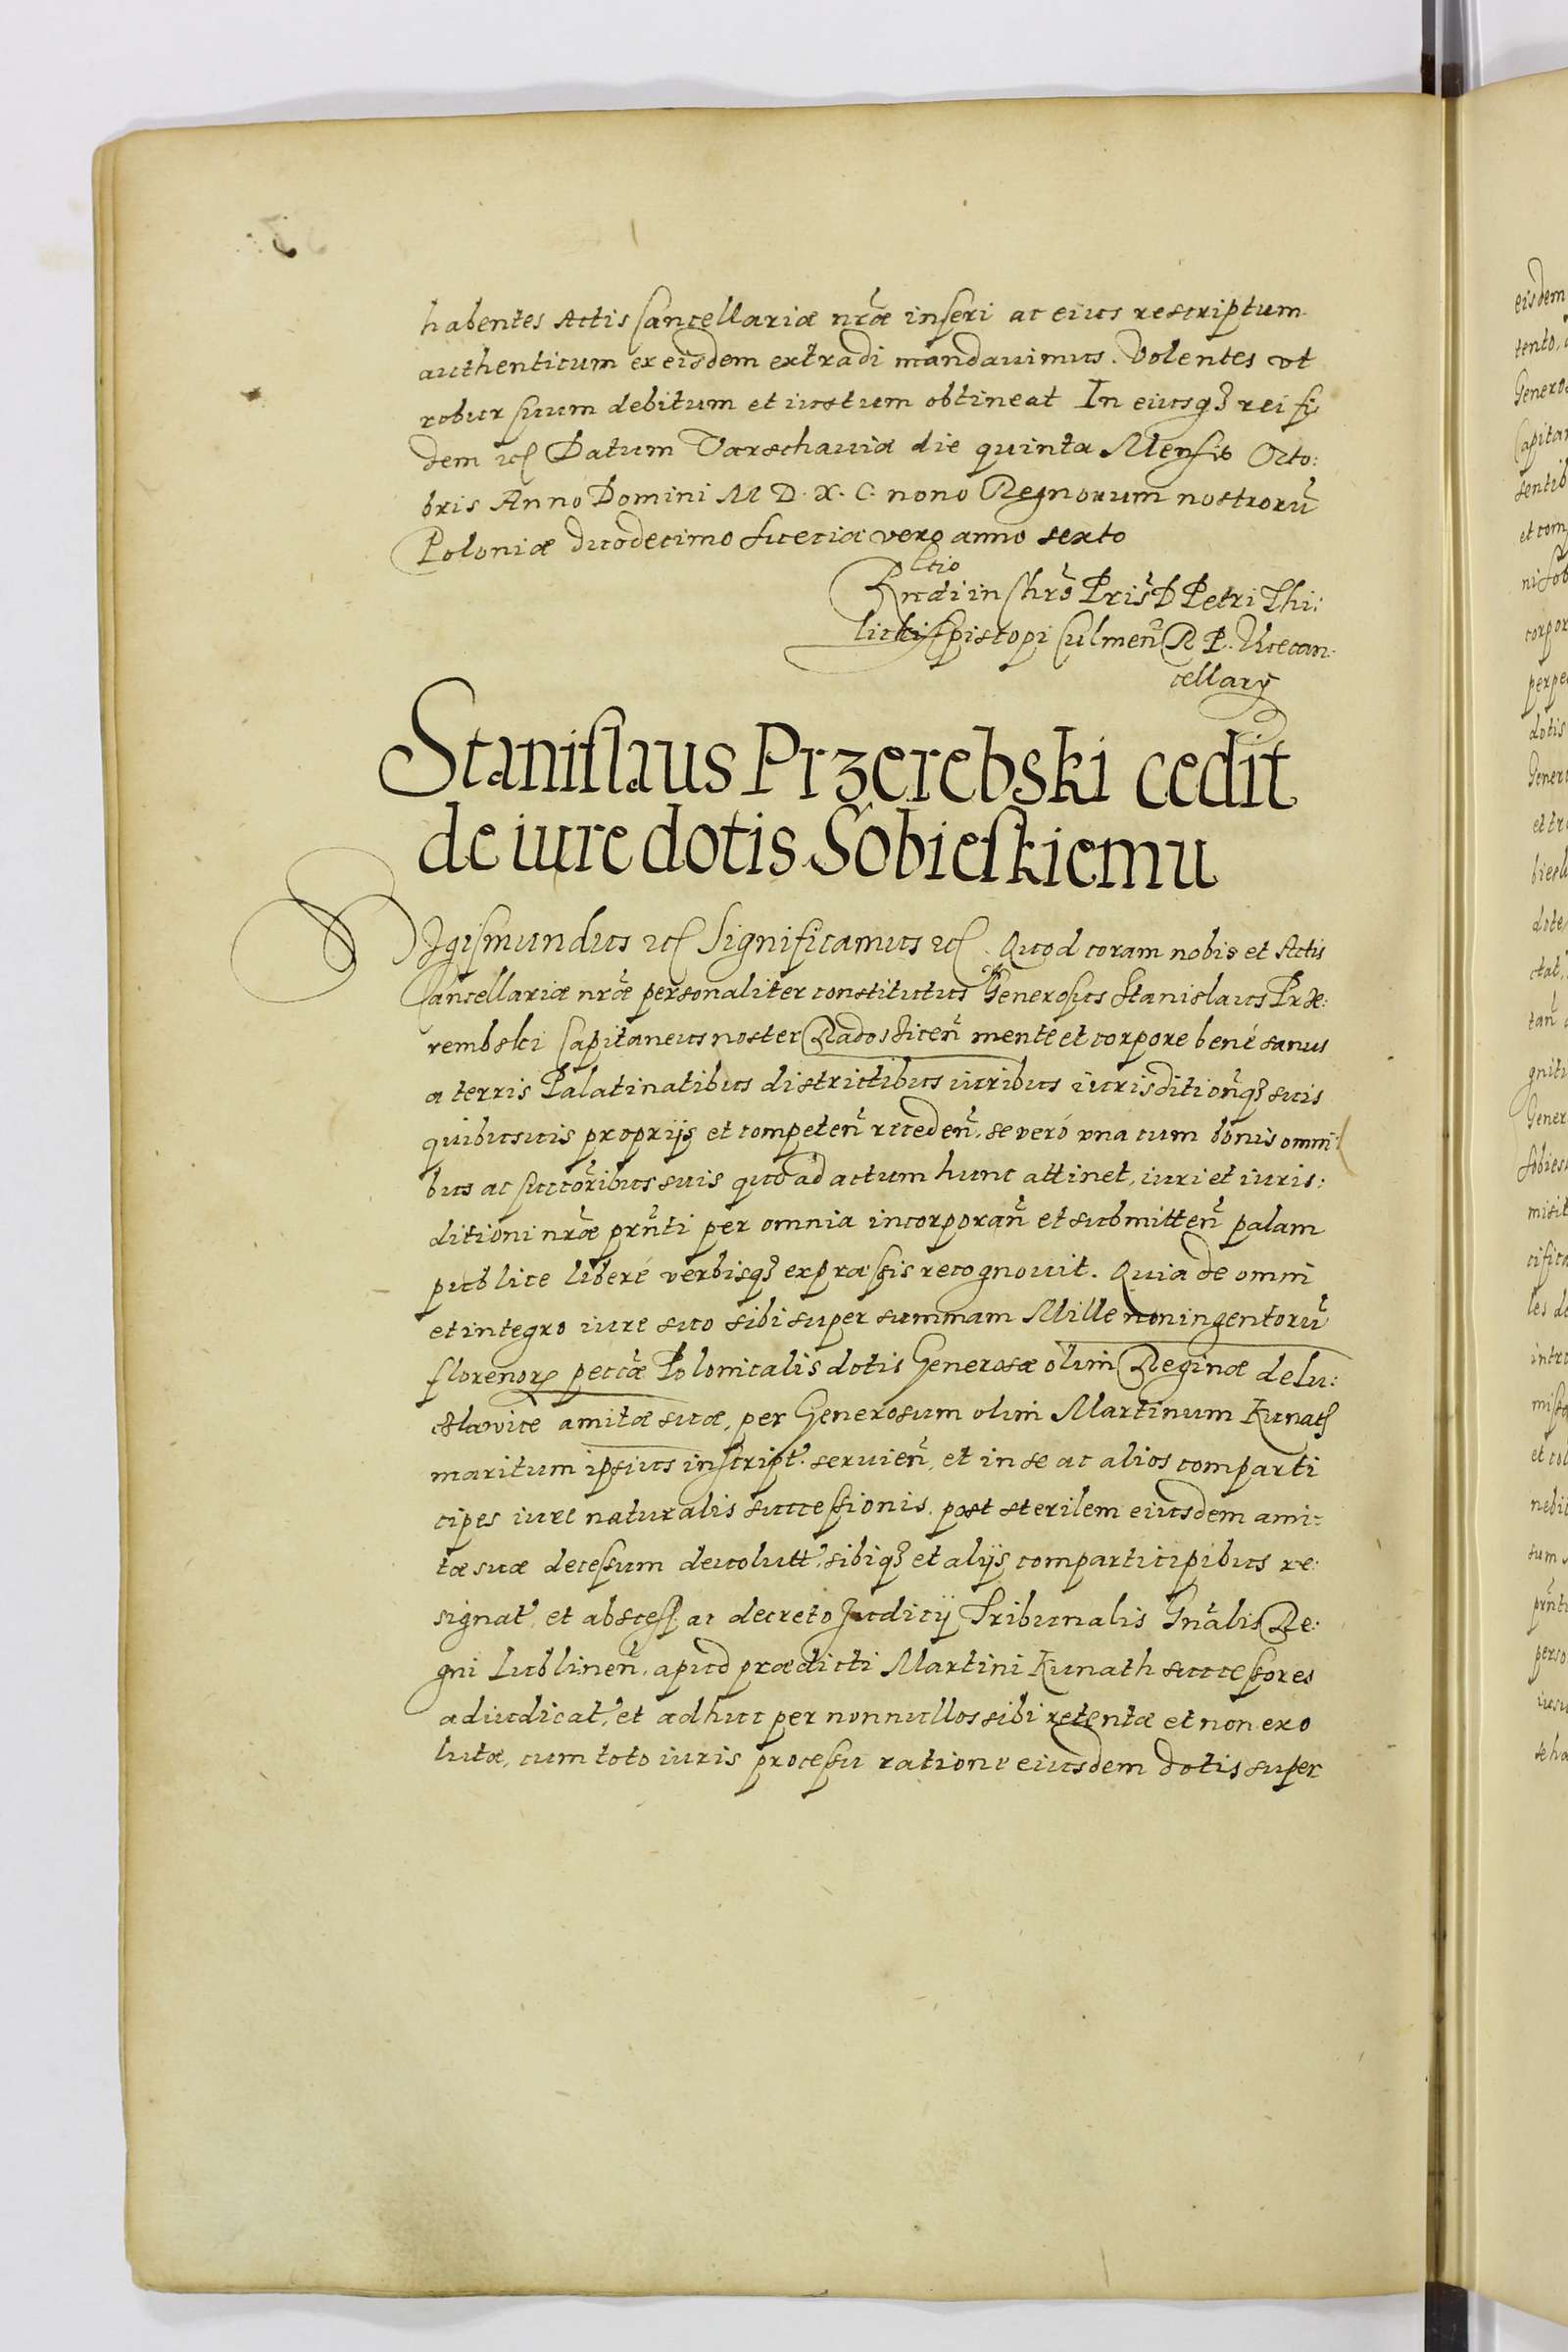 habentes Actis Cancellariæ nr̃æ inseri ac eius rescriptum
authenticum ex eisdem extradi mandauimus. Volentes vt
robur suum debitum et iustum obtineat In eiusqꝫ rei fi
dem etc Datum Varschauiæ die quinta Mensis Octo:
bris Anno Domini M D. X. C. nono Regnorum nostrorũ
Poloniæ duodecimo Sueciæ vero anno sexto
Rltio
Rndi in Chrõ Pris D Petri Thi:
licki Episcopi Culmeñ R P. Vicecan
cellarÿ
Stanislaus Przerebski cedit
de iure dotis Sobieskiemu
Sigismundus etc Significamus etc. Quod coram nobis et Actis
Cancellariæ nr̃æ personaliter constitutus Generosus Stanislaus Præ:
rembski Capitaneus noster Radosziceñ mente et corpore bené sanus
a terris Palatinatibus districtibus iuribus iurisditionqꝫ suis
quibusuis proprijs et competeñ recedeñ, se veró vna cum bonis omni
bus ac succoribus suis quo ad actum hunc attinet, iuri et iuris:
ditioni nr̃æ prñti per omnia incorporañ et submitteñ palam
publice liberé verbisqꝫ expræssis recognouit. Quia de omni
et integro iure suo sibi super summam Mille noningentorũ
florenorꝝ peccæ Polonicalis dotis Generosæ olim Reginæ de Lu:
stlavice amitæ suæ, per Generosum olim Martinum Kunath
maritum ipsius inscript. seruieñ, et in se ac alios comparti
cipes iure naturalis successionis, post sterilem eiusdem ami:
tæ suæ decessum deuolutt, sibiqꝫ et alijs comparticipibus re:
signat, et abscess ac decreto Judicij Tribunalis Gnãlis Re:
gni Lublineñ, apud prædicti Martini Kunath successores
adiudicat, et adhuc per nonnullos sibi retentæ et non exo
lutæ, cum toto iuris processu ratione eiusdem dotis super